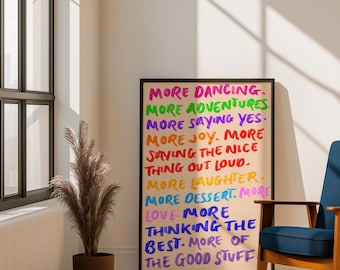 MORE DANCING.
MORE ADVENTURES.
MORE SAYING YES.
MORE JOY. MORE
SAYING THE NICE
THING OUT LOUD.
MORE LAUGHTER.
MORE DESSERT. MORE
LOVE. MORE
THINKING THE
BEST. MORE OF
THE GOOD STUFF